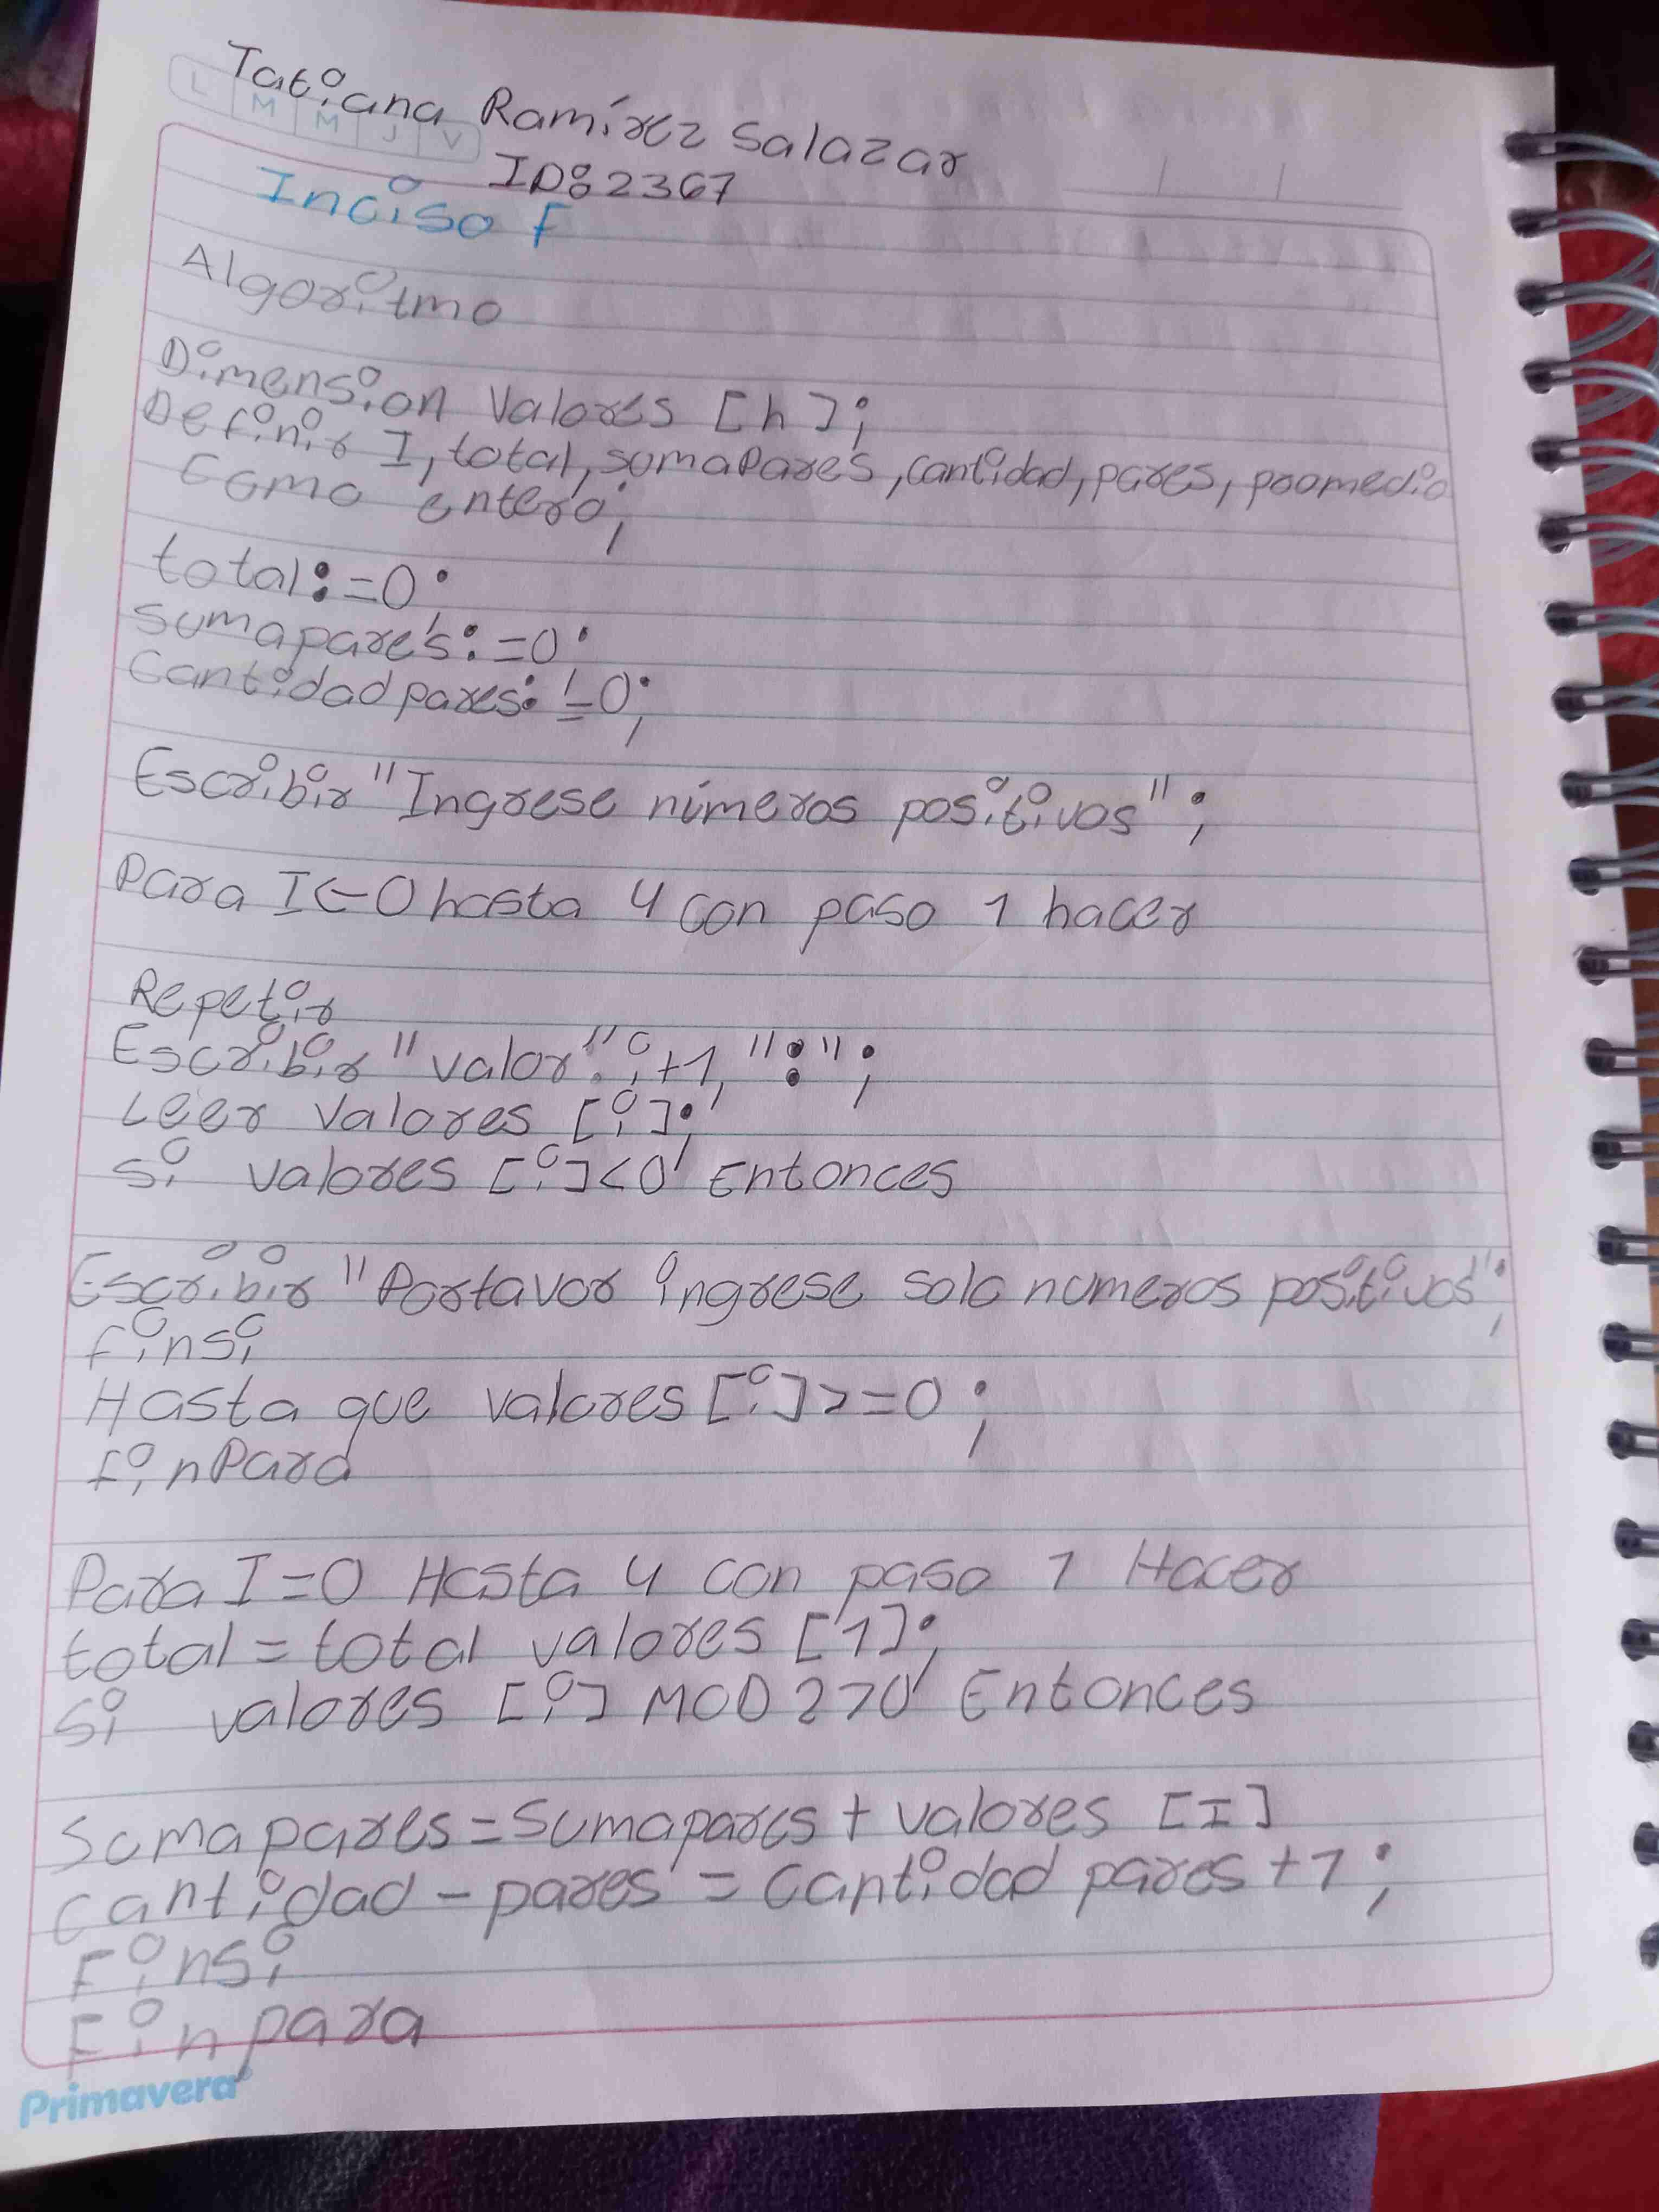 Tatiana Ramírez Salazar
L M M J V
ID: 2367
Inciso F
Algoritmo
Dimension Valores [h];
Definir I, total, sumaPares, cantidad, pares, promedio
Como entero;
total:=0;
sumapares:=0;
Cantidad pares:=0;
Escribir "Ingrese números positivos";
Para I<-0 hasta 4 con paso 1 hacer
Repetir
Escribir "valor", i+1, ":";
Leer Valores [i];
si valores [i]<0 Entonces
Escribir "Porfavor ingrese solo numeros positivos";
finsi
Hasta que valores [i]>=0;
finPara
Para I=0 Hasta 4 con paso 1 Hacer
total = total valores [1];
Si valores [i] MOD 2>0 Entonces
Sumapares=Sumapares + valores [I]
Cantidad - pares = Cantidad pares +1;
Finsi
Finpara
Primavera